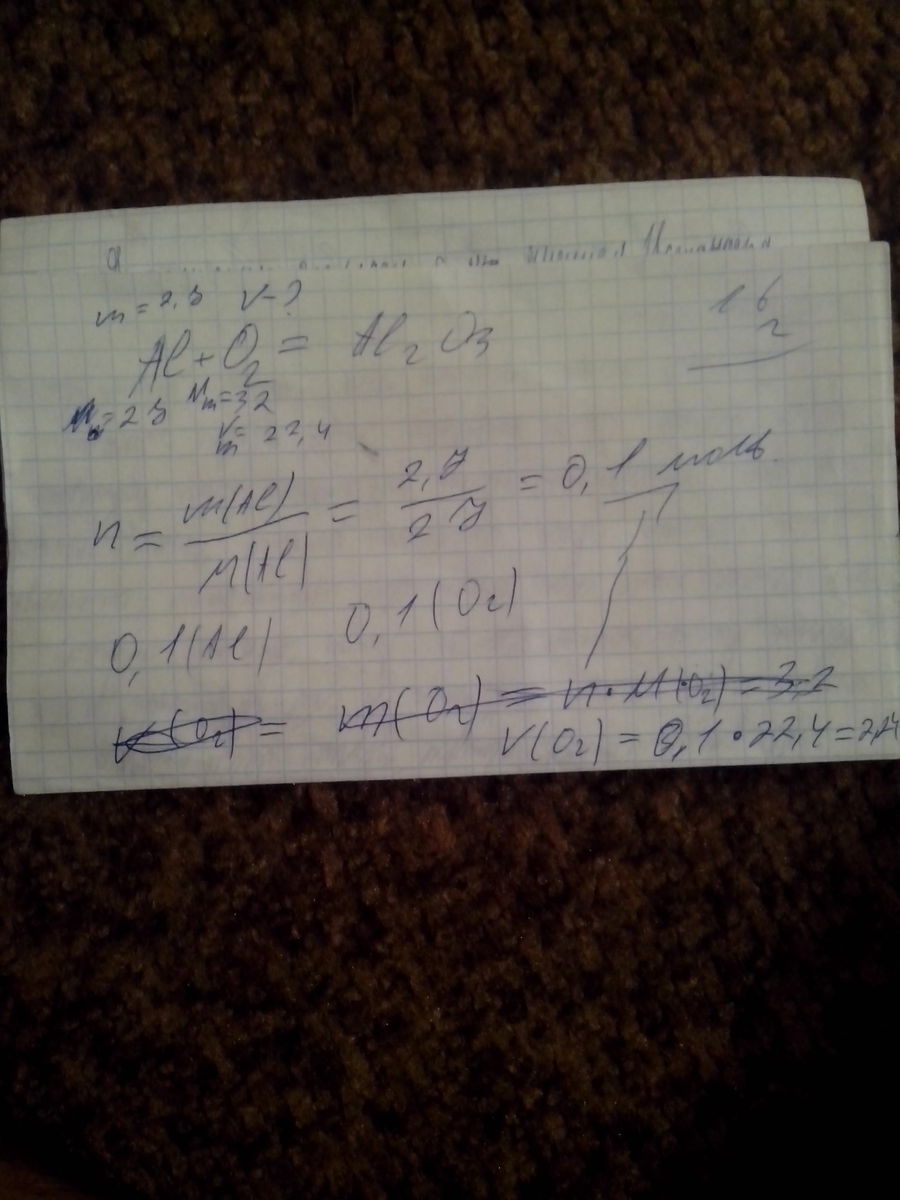 m = 2,7 V-?
16
2
Al + O2 = Al2O3
M = 27 Mm = 32
Vm = 22,4
n = m(Al)/M(Al) = 2,7/27 = 0,1 моль
0,1(Al) 0,1(O2)
V(O2) = m(O2) = n·M(O2) = 3,2
V(O2) = 0,1·22,4=2,24